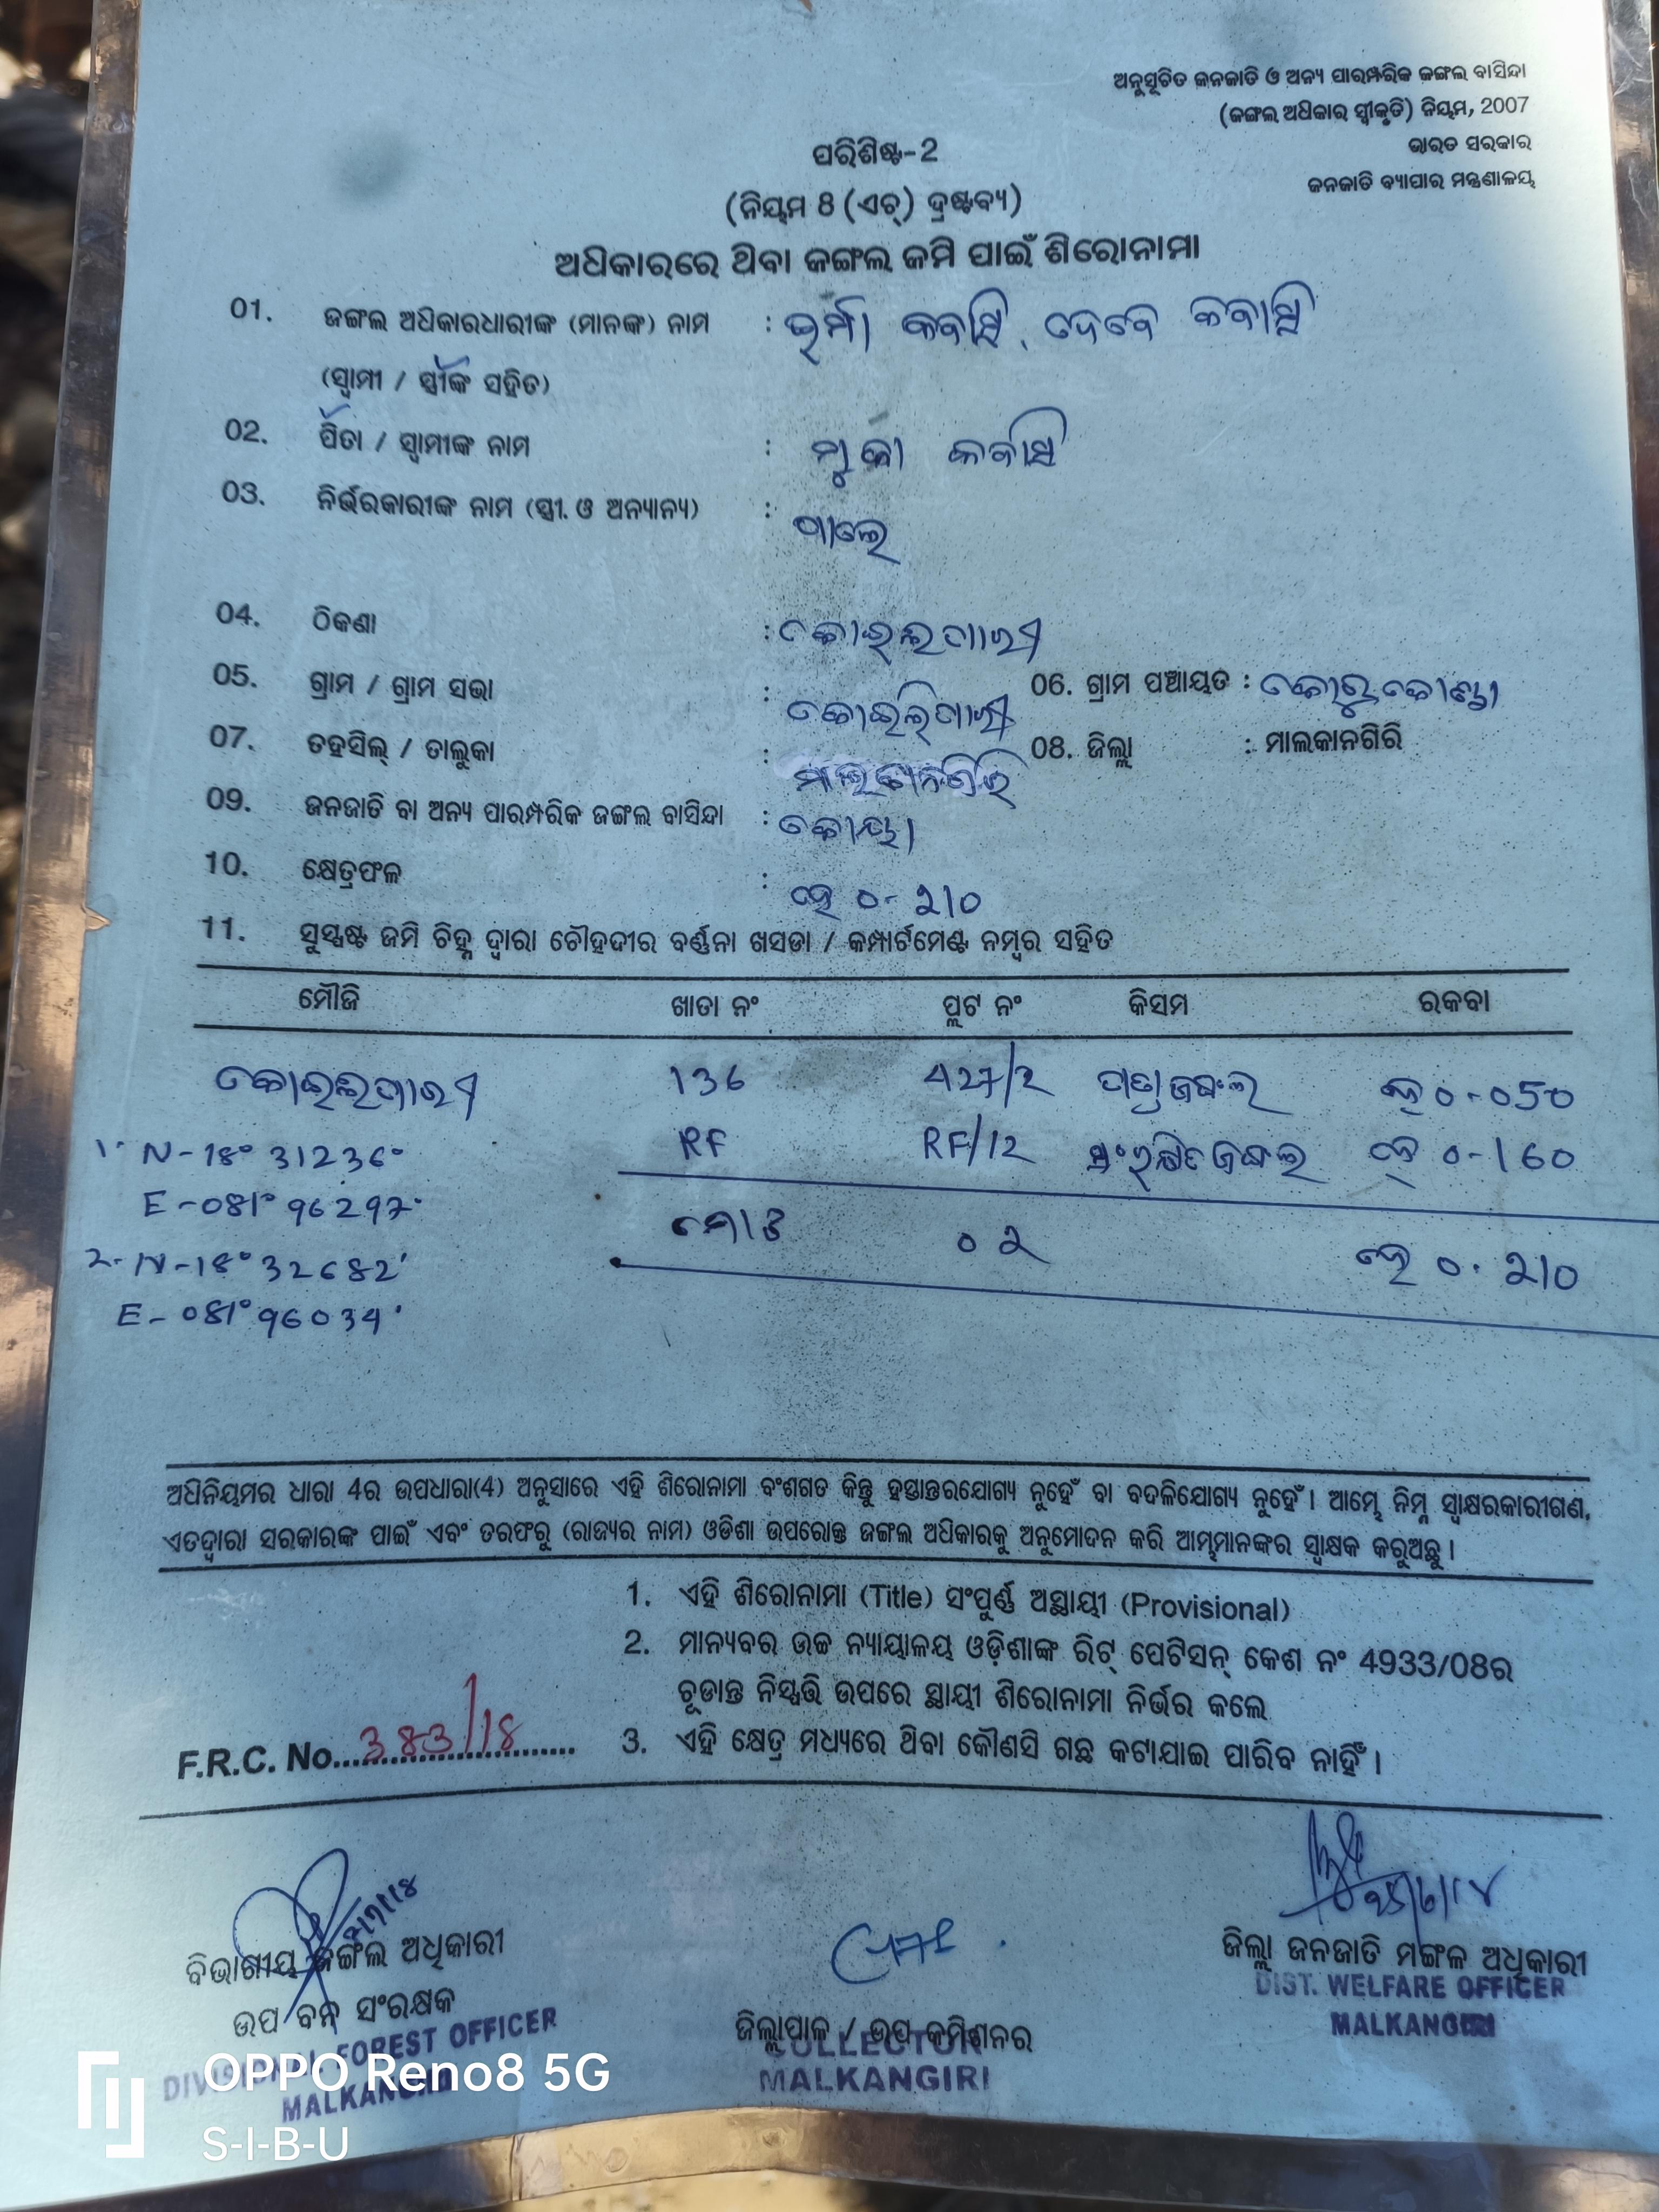 ଅନୁସୂଚିତ ଜନଜାତି ଓ ଅନ୍ୟ ପାରମ୍ପରିକ ଜଙ୍ଗଲ ବାସିନ୍ଦା
(ଜଙ୍ଗଲ ଅଧିକାର ସ୍ୱୀକୃତି) ନିୟମ, 2007
ଭାରତ ସରକାର
ଜନଜାତି ବ୍ୟାପାର ମନ୍ତ୍ରଣାଳୟ
ପରିଶିଷ୍ଟ-2
(ନିୟମ 8 (ଏଚ୍) ଦ୍ରଷ୍ଟବ୍ୟ)
ଅଧିକାରରେ ଥିବା ଜଙ୍ଗଲ ଜମି ପାଇଁ ଶିରୋନାମା
01. ଜଙ୍ଗଲ ଅଧିକାରଧାରୀଙ୍କ (ମାନଙ୍କ) ନାମ : କବାସି, ଦେବେ କବାସି
(ସ୍ୱାମୀ / ସ୍ତ୍ରୀଙ୍କ ସହିତ)
02. ପିତା / ସ୍ୱାମୀଙ୍କ ନାମ : କବାସି
03. ନିର୍ଭରକାରୀଙ୍କ ନାମ (ସ୍ତ୍ରୀ. ଓ ଅନ୍ୟାନ୍ୟ) : ପାଲେ
04. ଠିକଣା :
05. ଗ୍ରାମ / ଗ୍ରାମ ସଭା : 06. ଗ୍ରାମ ପଞ୍ଚାୟତ : କୋରୁକୋଣ୍ଡା
07. ତହସିଲ୍ / ତାଲୁକା : ମାଲକାନଗିରି 08. ଜିଲ୍ଲା : ମାଲକାନଗିରି
09. ଜନଜାତି ବା ଅନ୍ୟ ପାରମ୍ପରିକ ଜଙ୍ଗଲ ବାସିନ୍ଦା : କୋୟା
10. କ୍ଷେତ୍ରଫଳ : ହେ ୦-୨1୦
11. ସୁସ୍ପଷ୍ଟ ଜମି ଚିହ୍ନ ଦ୍ୱାରା ଚୌହଦୀର ବର୍ଣ୍ଣନା ଖସଡା / କମ୍ପାର୍ଟମେଣ୍ଟ ନମ୍ବର ସହିତ
ମୌଜି ଖାତା ନଂ ପ୍ଲଟ ନଂ କିସମ ରକବା
136 427/2 ପତ୍ରା ଜଙ୍ଗଲ ହେ 0-050
1. N-18° 31236°
RF RF/12 ସଂରକ୍ଷିତ ଜଙ୍ଗଲ ହେ 0-160
E-081° 96297'
ମୋଟ ୦୨ ହେ ୦.୨1୦
2. N-18° 32682'
E-081° 96034'
ଅଧିନିୟମର ଧାରା 4ର ଉପଧାରା(4) ଅନୁସାରେ ଏହି ଶିରୋନାମା ବଂଶଗତ କିନ୍ତୁ ହସ୍ତାନ୍ତରଯୋଗ୍ୟ ନୁହେଁ ବା ବଦଳିଯୋଗ୍ୟ ନୁହେଁ। ଆମ୍ଭେ ନିମ୍ନ ସ୍ୱାକ୍ଷରକାରୀଗଣ,
ଏତଦ୍ୱାରା ସରକାରଙ୍କ ପାଇଁ ଏବଂ ତରଫରୁ (ରାଜ୍ୟର ନାମ) ଓଡିଶା ଉପରୋକ୍ତ ଜଙ୍ଗଲ ଅଧିକାରକୁ ଅନୁମୋଦନ କରି ଆମ୍ଭମାନଙ୍କର ସ୍ୱାକ୍ଷକ କରୁଅଛୁ।
1. ଏହି ଶିରୋନାମା (Title) ସଂପୁର୍ଣ୍ଣ ଅସ୍ଥାୟୀ (Provisional)
2. ମାନ୍ୟବର ଉଚ୍ଚ ନ୍ୟାୟାଳୟ ଓଡ଼ିଶାଙ୍କ ରିଟ୍ ପେଟିସନ୍ କେଶ ନଂ 4933/08ର
ଚୂଡାନ୍ତ ନିସ୍ପତ୍ତି ଉପରେ ସ୍ଥାୟୀ ଶିରୋନାମା ନିର୍ଭର କଲେ
3. ଏହି କ୍ଷେତ୍ର ମଧ୍ୟରେ ଥିବା କୌଣସି ଗଛ କଟାଯାଇ ପାରିବ ନାହିଁ।
F.R.C. No. 383/18
ବିଭାଗୀୟ ଜଙ୍ଗଲ ଅଧିକାରୀ
ଉପ ବନ ସଂରକ୍ଷକ
DIVISIONAL FOREST OFFICER
MALKANGIRI
ଜିଲ୍ଲାପାଳ / ଉପ କମିଶନର
COLLECTOR
MALKANGIRI
ଜିଲ୍ଲା ଜନଜାତି ମଙ୍ଗଳ ଅଧିକାରୀ
DIST. WELFARE OFFICER
MALKANGIRI
OPPO Reno8 5G
S-I-B-U